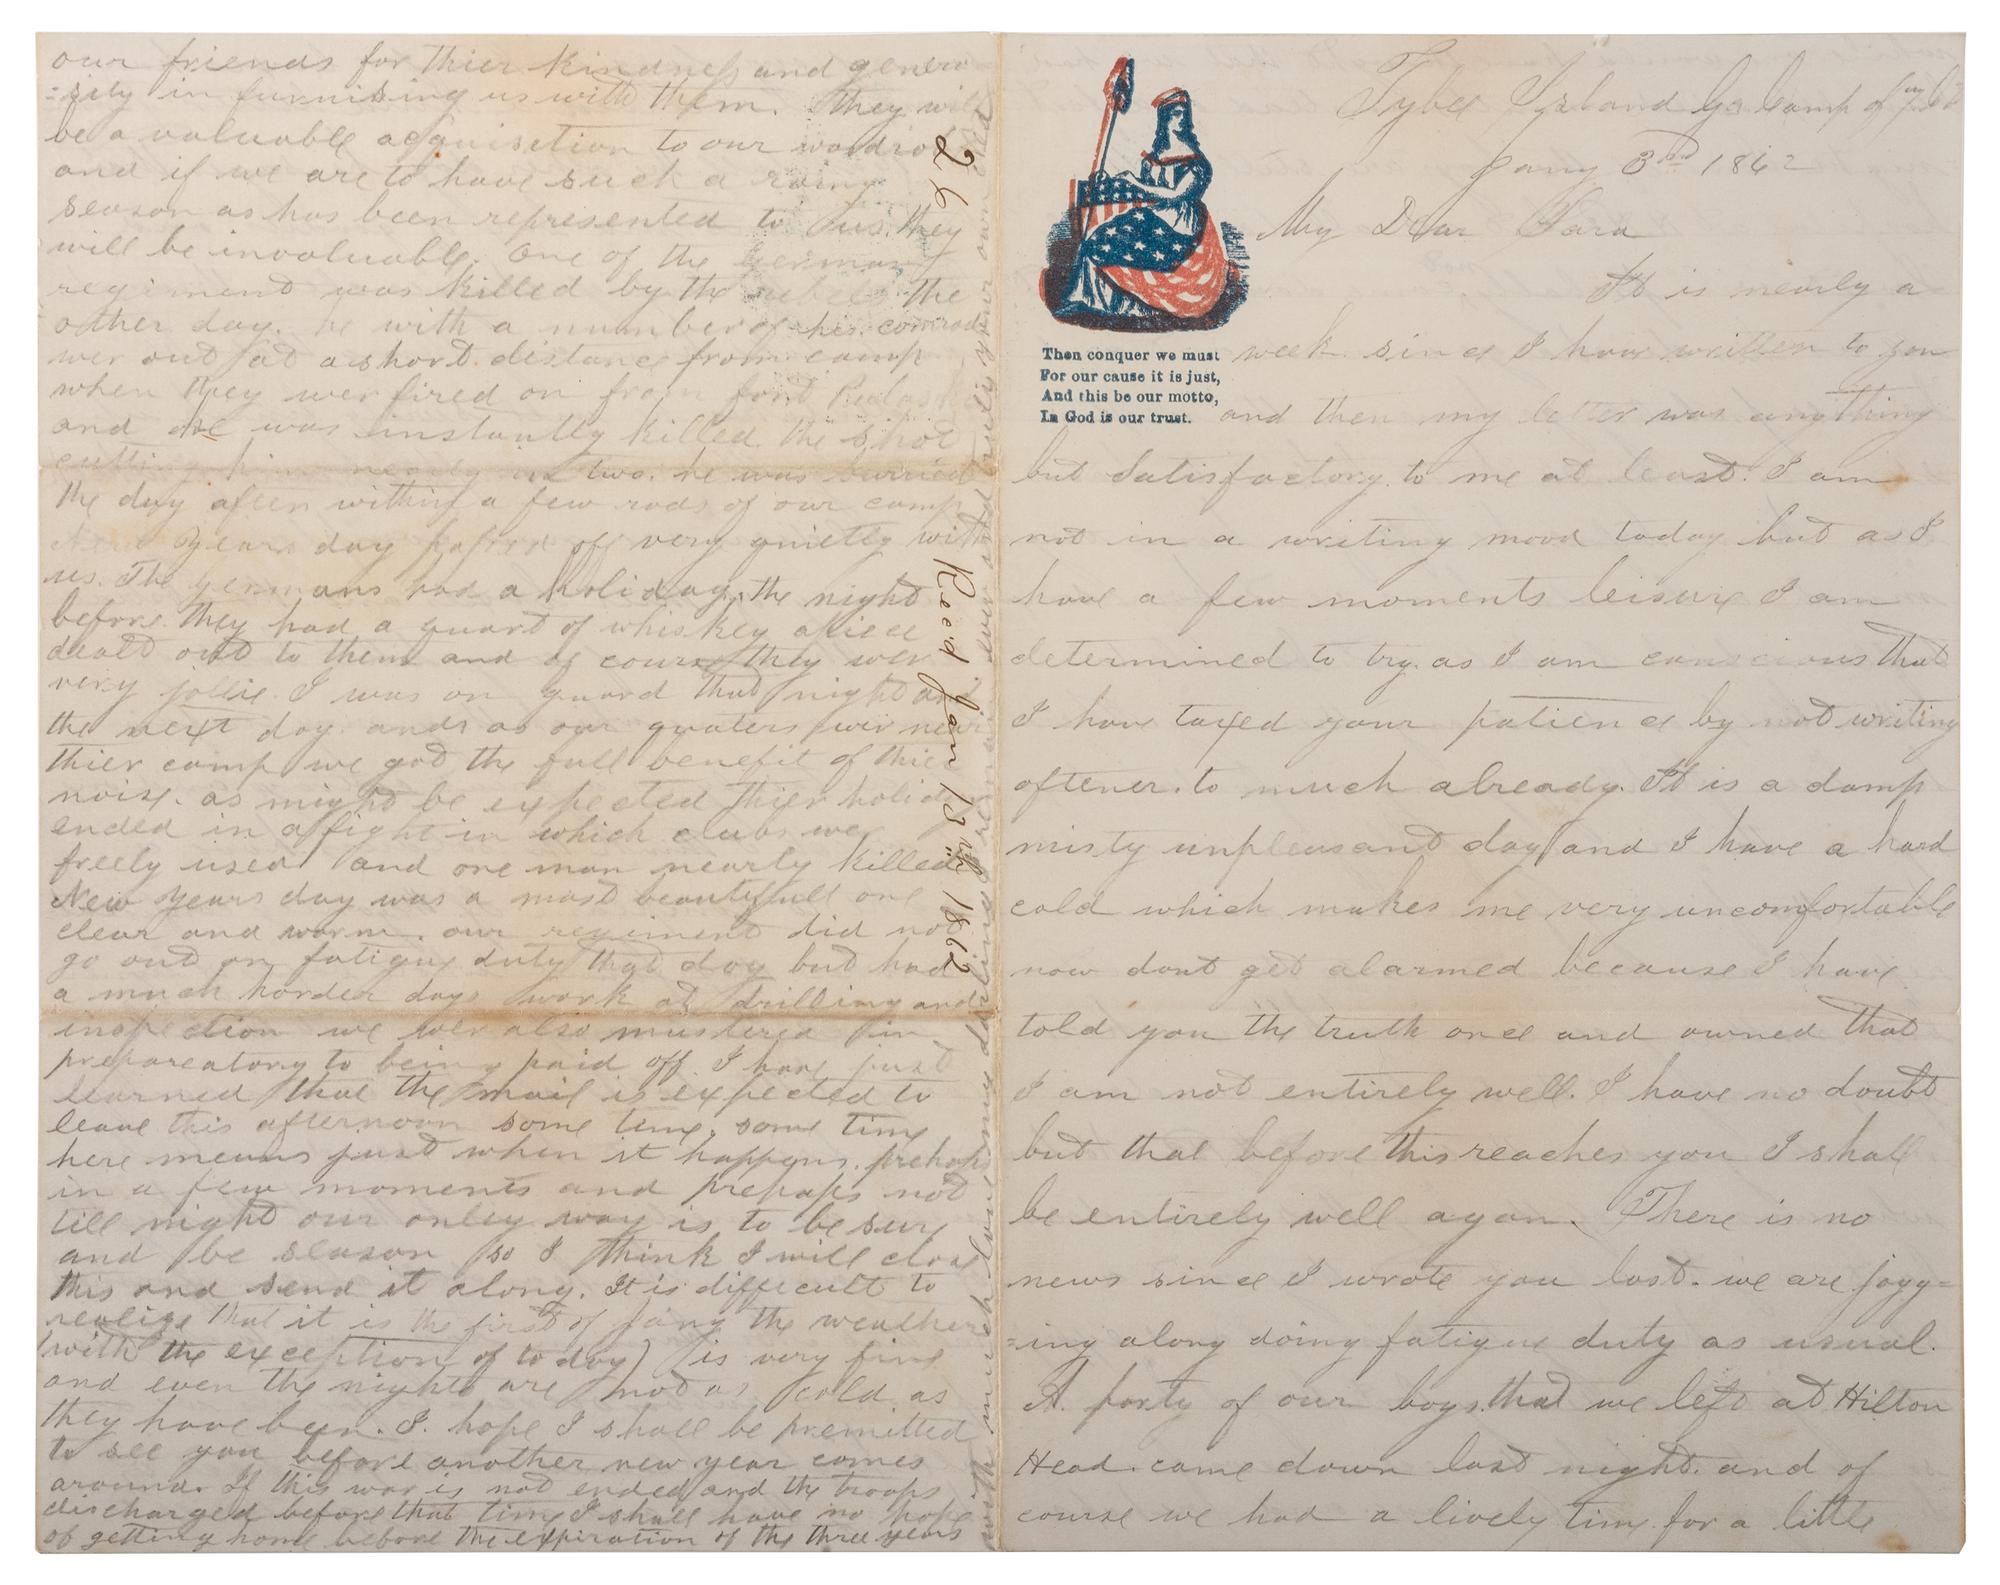 Tybee Island Ga Camp of
Jany 3rd 1862
My Dear Sara
It is nearly a
week since I have written to you
and then my letter was anything
but satisfactory. to me at least. I am
not in a writing mood today but as I
have a few moments leisure I am
determined to try. as I am conscious that
I have taxed your patience by not writing
oftener. to much already. It is a damp
misty unpleasant day and I have a hard
cold which makes me very uncomfortable
now dont get alarmed because I have
told you the truth once and owned that
I am not entirely well. I have no doubt
but that before this reaches you I shall
be entirely well again. There is no
news since I wrote you last. we are jogg=
=ing along doing fatigue duty as usual.
A. party of our boys. that we left at Hilton
Head. came down last night. and of
course we had a lively time. for a little
Then conquer we must
For our cause it is just,
And this be our motto,
In God is our trust.
our friends for thier kindness and genero
=sity in furnising us with them. They will
be a valuable acquisetion to our wardro
and if we are to have such a rainy
season as has been represented to us. they
will be invaluable. One of the german
regiment was killed by the rebels. the
other day. he with a number of his comrad
wer out at a short distance from camp
when they wer fired on from fort Pulaski
and he was instantly killed. the shot
cutting him nearly in two. he was burried
the day after within a few rods of our camp
New Years day passed off very quietly with
us. The germans had a holiday. the night
before. they had a quart of whiskey apiece
dealt out to them and of course they wer
very jollie. I was on guard that night and
the next day. and as our quaters wer near
thier camp we got the full benefit of thier
noise. as might be expected thier holiday
ended in a fight in which clubs wer
freely used and one man nearly killed
New Years day was a most beautifull one
clear and warm. our regiment did not
go out on fatigue duty that day but had
a much harder days work at drilling and
inspection we wer also mustered in
prepareatory to being paid off. I have just
learned that the mail is expected to
leave this afternoon some time. some time
here means just when it happens. prehaps
in a few moments and prehaps not
till night our onley way is to be sure
and be season so I think I will close
this and send it along. It is difficult to
realize that it is the first of Jany the weather
(with the exception of to day) is very fine
and even the nights are not as cold as
they have been. I. hope I shall be premitted
to see you before another new year comes
around. If this war is not ended and the troops
discharged before that time I shall have no hope
of getting home before the expiration of the three years
with much love my darling I remain ever and truly your own
26
Recd Jan 13th 1862